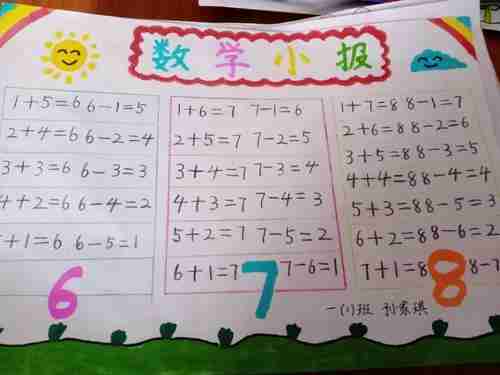 数学小报
1+5=6 6-1=5
2+4=6 6-2=4
3+3=6 6-3=3
4+2=6 6-4=2
+1=6 6-5=1
6
1+6=7 7-1=6
2+5=7 7-2=5
3+4=7 7-3=4
4+3=7 7-4=3
5+2=7 7-5=2
6+1=7 7-6=1
7
1+7=8 8-1=7
2+6=8 8-2=6
3+5=8 8-3=5
4+4=8 8-4=4
5+3=8 8-5=3
6+2=8 8-6=2
7+1=8 8-7
8
一(1)班